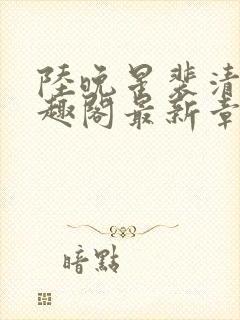 陸晚星裴清
趣閣最新章
暗點